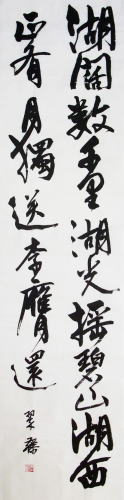 湖闊數千里湖光搖碧山湖西
正有月獨送李膺還
翠